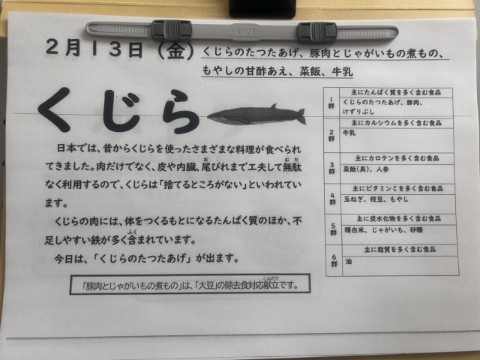 ２月１３日（金）くじらのたつたあげ、豚肉とじゃがいもの煮もの、
もやしの甘酢あえ、菜飯、牛乳
くじら
日本では、昔からくじらを使ったさまざまな料理が食べられ
てきました。肉だけでなく、皮や内臓、尾びれまで工夫して無駄
なく利用するので、くじらは「捨てるところがない」といわれてい
ます。
くじらの肉には、体をつくるもとになるたんぱく質のほか、不
足しやすい鉄が多く含まれています。
今日は、「くじらのたつたあげ」が出ます。
「豚肉とじゃがいもの煮もの」は、「大豆」の除去食対応献立です。
１群
主にたんぱく質を多く含む食品
くじらのたつたあげ、豚肉、
けずりぶし
２群
主にカルシウムを多く含む食品
牛乳
３群
主にカロテンを多く含む食品
菜飯(具)、人参
４群
主にビタミンＣを多く含む食品
玉ねぎ、枝豆、もやし
５群
主に炭水化物を多く含む食品
精白米、じゃがいも、砂糖
６群
主に脂質を多く含む食品
油